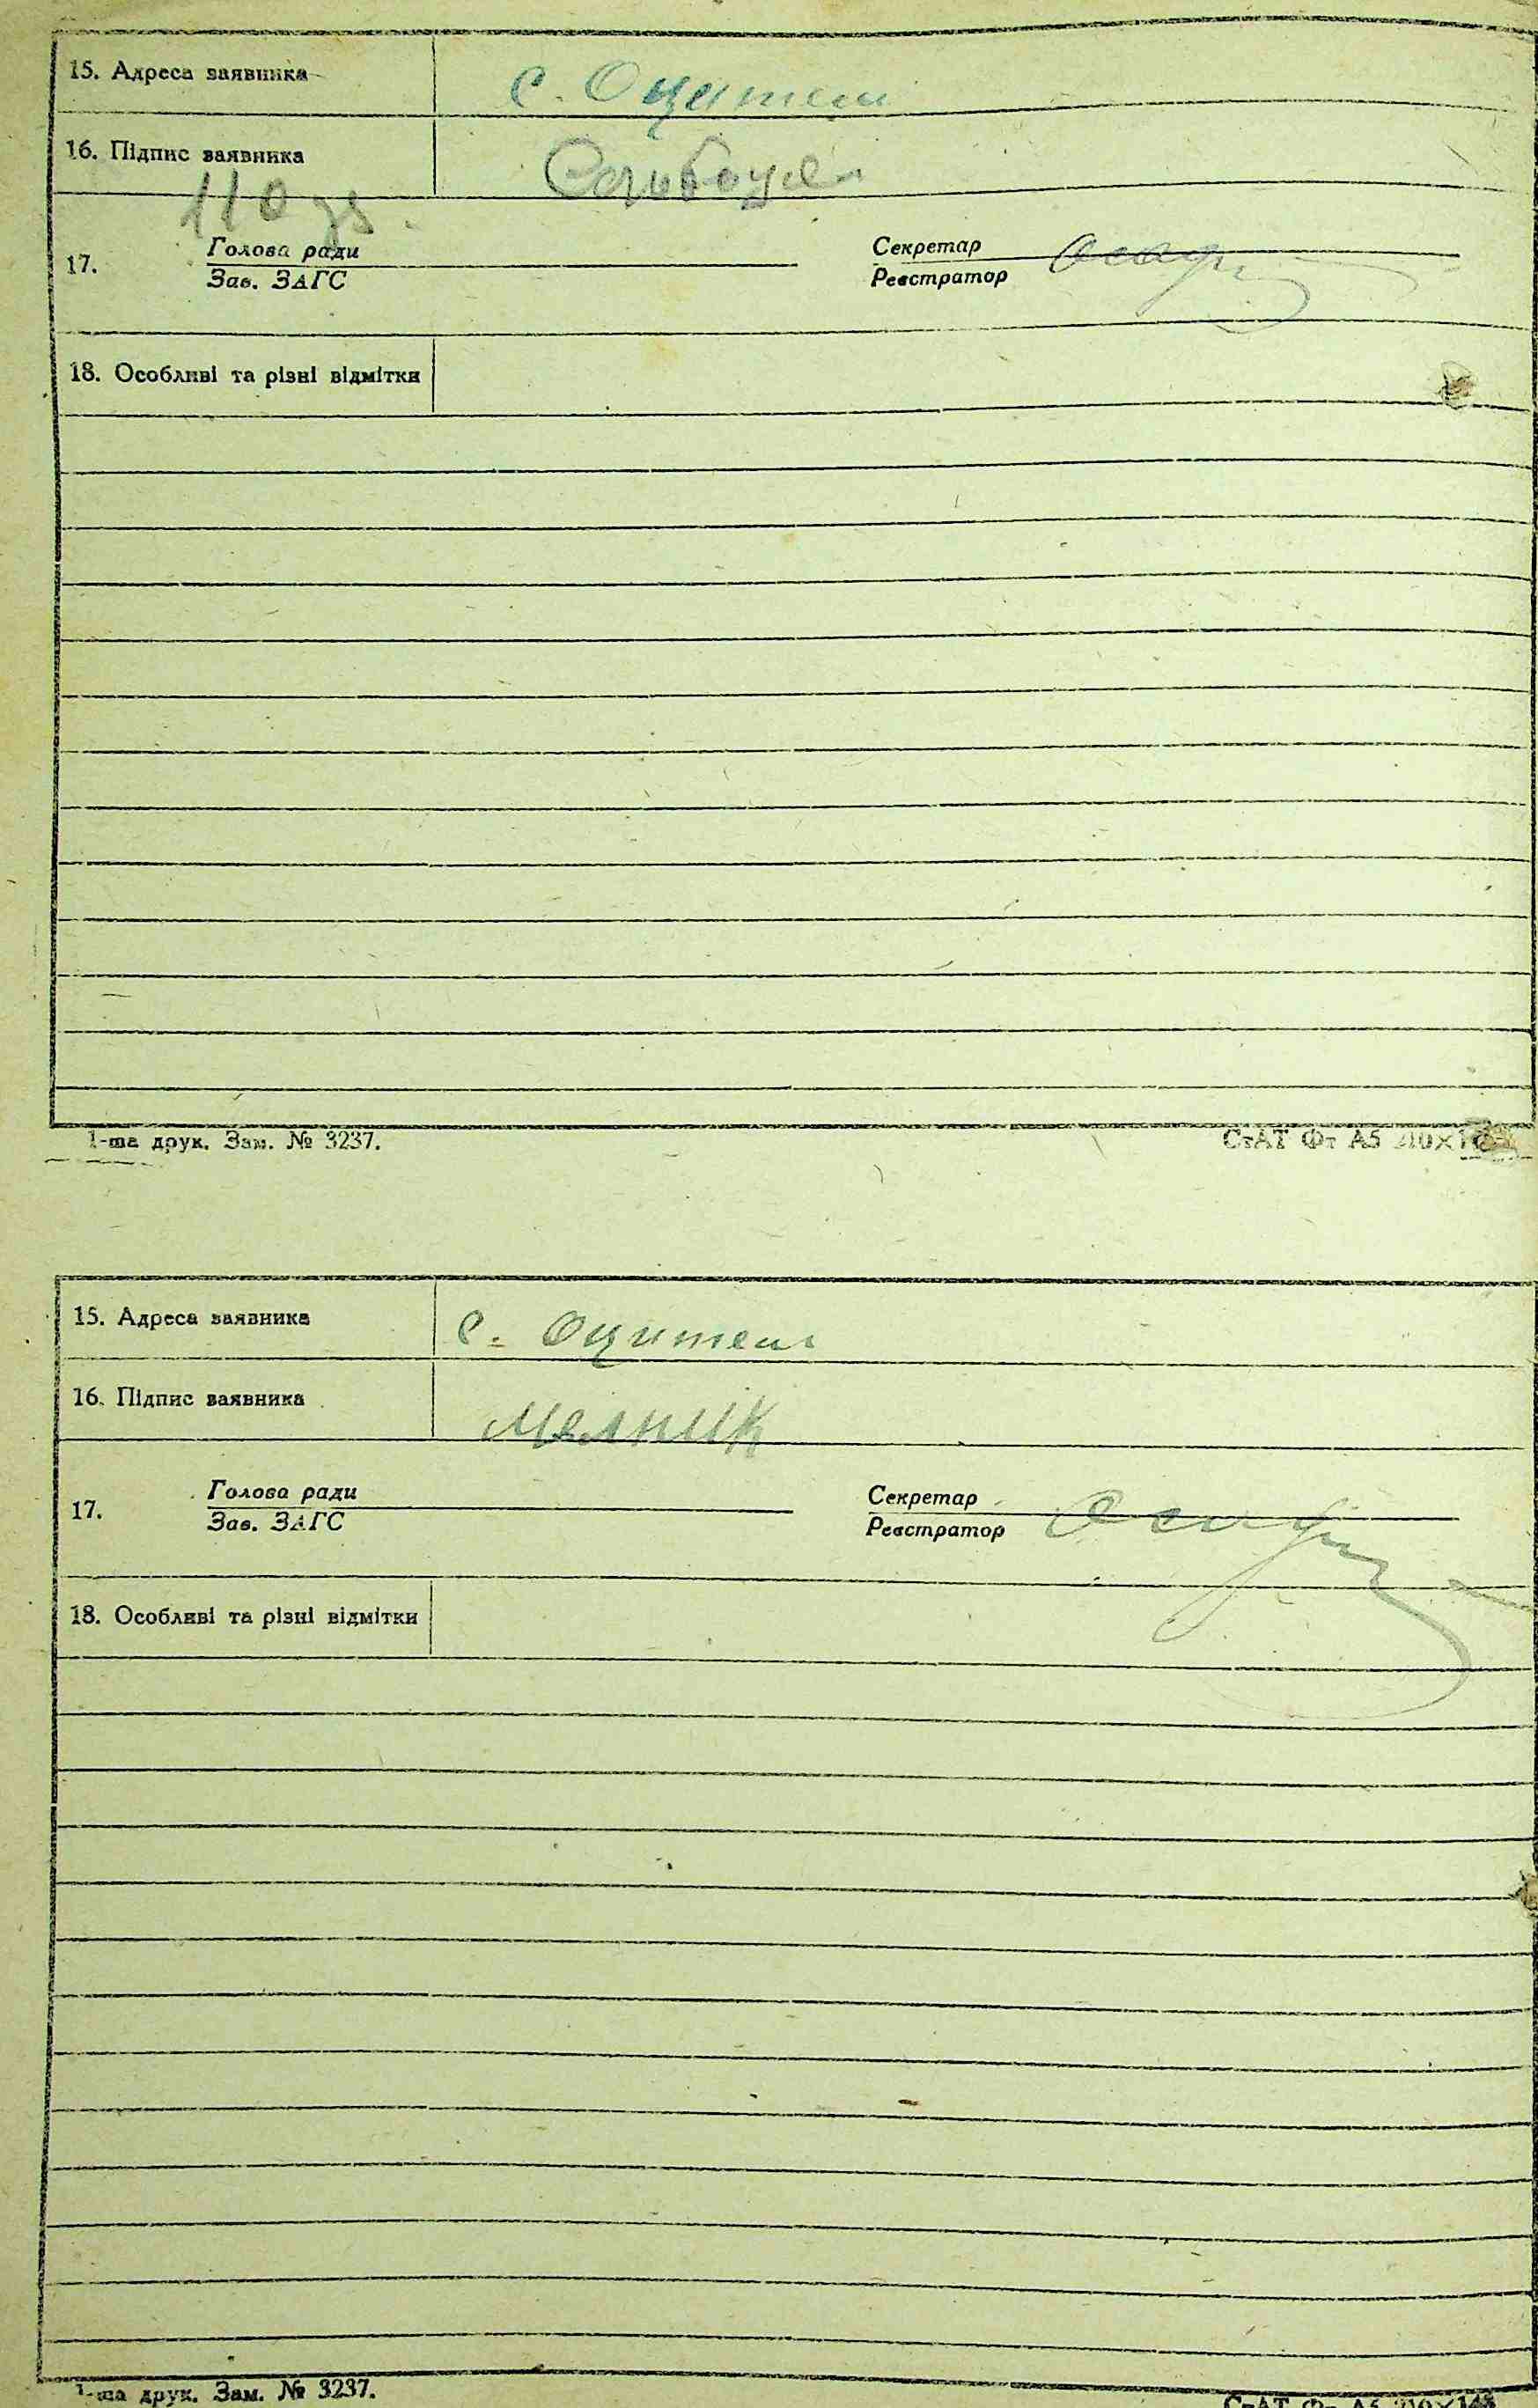 15. Адреса заявника с. Оцитель
16. Підпис заявника
110
17. Голова ради Секретар
Зав. ЗАГС Реєстратор
18. Особливі та різні відмітки
1-ша друк. Зам. № 3237. СтАТ Фт А5
15. Адреса заявника с. Оцитель
16. Підпис заявника Мелник
17. Голова ради Секретар
Зав. ЗАГС Реєстратор
18. Особливі та різні відмітки
1-ша друк. Зам. № 3237. СтАТ Фт А5